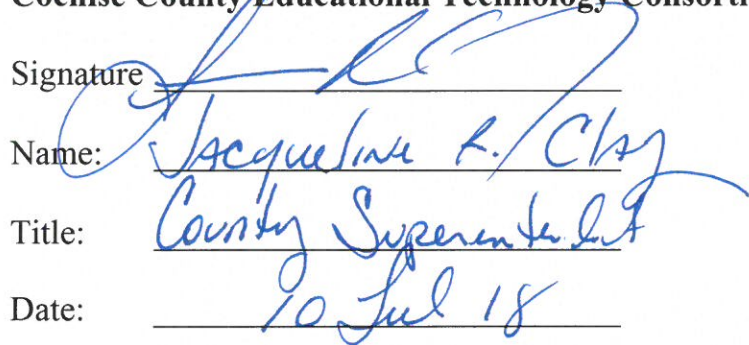 Cochise County Educational Technology Consorti
Signature
Name: Jacqueline R. Clay
Title: County Superintendent
Date: 10 Jul 18